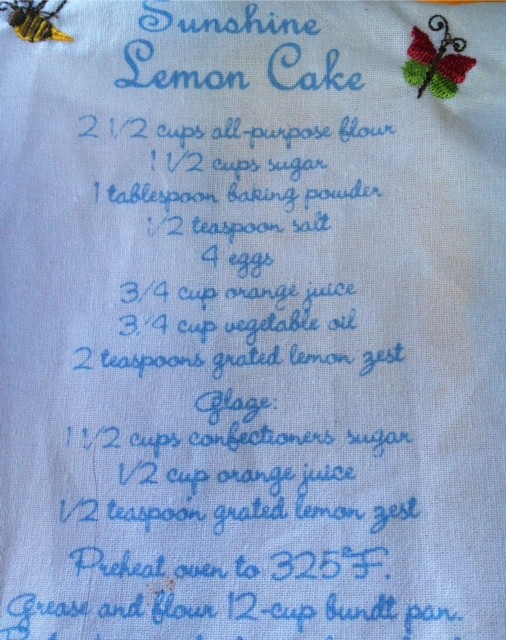 Sunshine
Lemon Cake
2 1/2 cups all-purpose flour
1 1/2 cups sugar
1 tablespoon baking powder
1/2 teaspoon salt
4 eggs
3/4 cup orange juice
3/4 cup vegetable oil
2 teaspoons grated lemon zest
Glaze:
1 1/2 cups confectioners sugar
1/2 cup orange juice
1/2 teaspoon grated lemon zest
Preheat oven to 325°F.
Grease and flour 12-cup bundt pan.